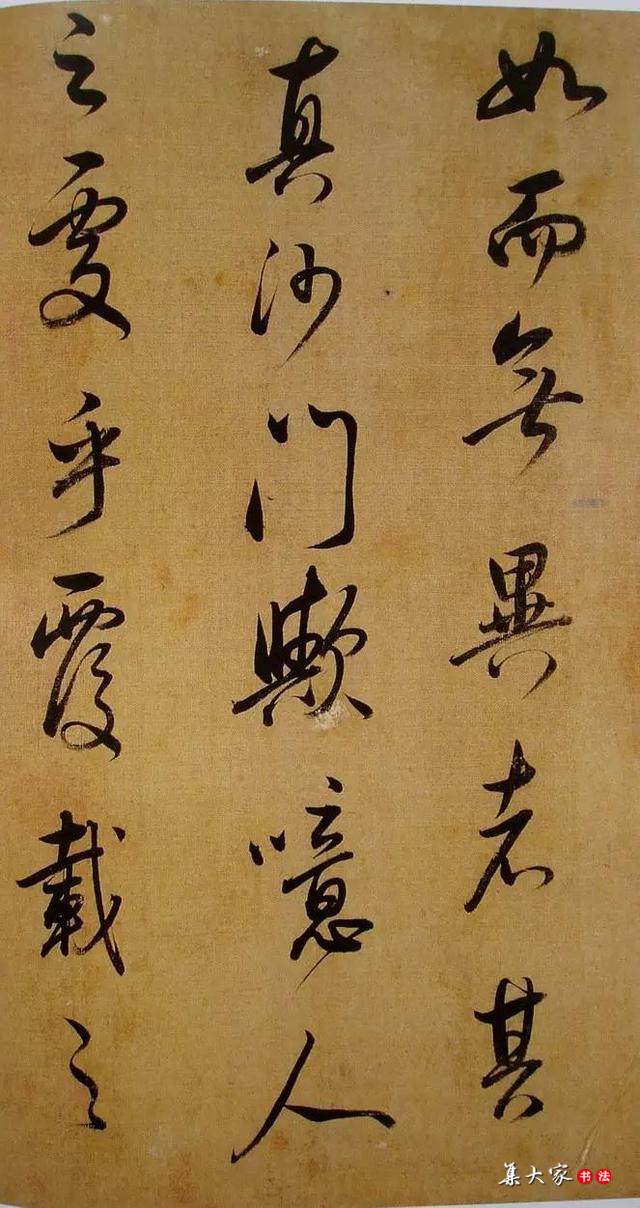 如而無異者其
真沙門歟噫人
之處乎覆載之
集大家 书法